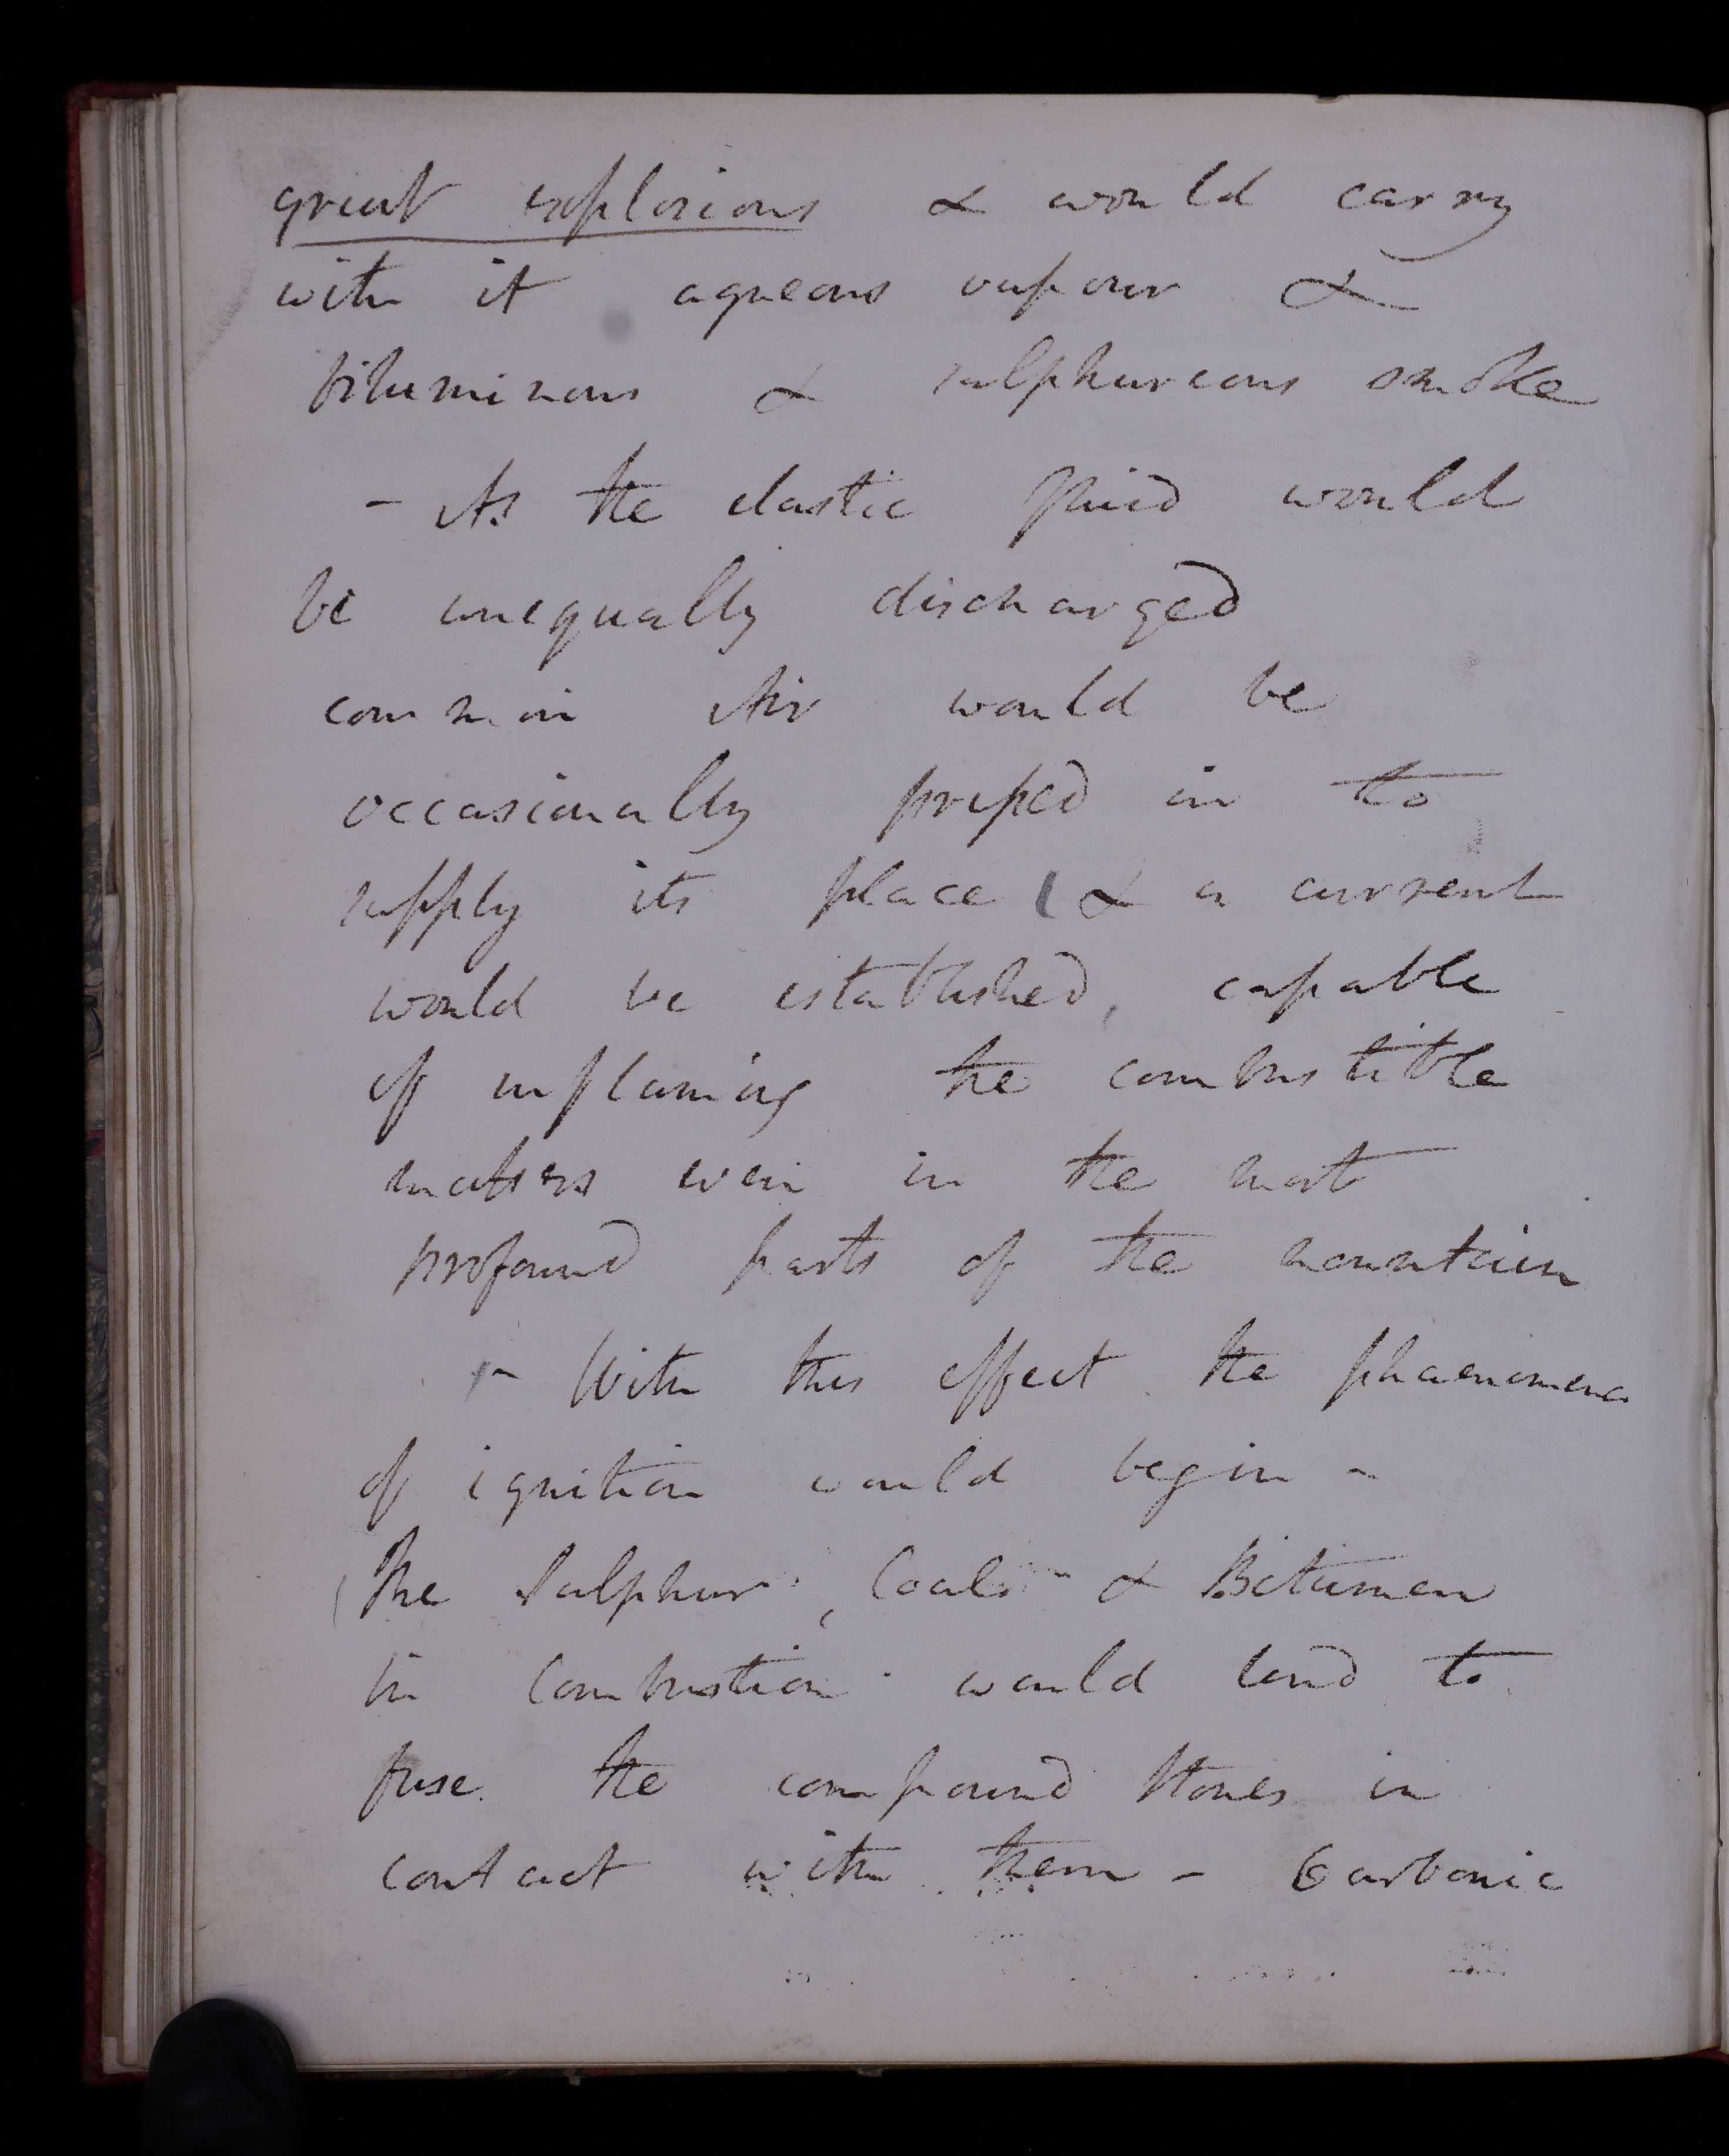 great explosions & would carry
with it aqueous vapour &
bituminous & sulphureous smoke
- As the elastic fluid would
be unequally discharged
common Air would be
occasionally pressed in to
supply its place & a current
would be established, capable
of inflaming the combustible
matters even in the most
profound parts of the mountain
- With this effect the phaenomena
of ignition would begin -
The Sulphur, Coals & Bitumen
in Combustion would tend to
fuse the compound stones in
contact with them - Carbonic